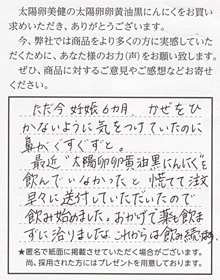 太陽卵美健の太陽卵卵黄油黒にんにくをお買い
求めいただき、ありがとうございます。
今、弊社では商品をより多くの方に実感していた
だくために、あなた様のお力(声)をお願い致します。
ぜひ、商品に対するご意見やご感想などお寄せ
ください。
ただ今 妊娠6カ月 かぜをひ
かないように気をつけていたのに
鼻がぐずぐずと。
最近“太陽卵卵黄油黒にんにくを
飲んでいなかったと 慌てて注文
早々に送付していただいたので
飲み始めました。おかげで薬も飲ま
ずに治りましたな これからは飲み続
★匿名で紙面に掲載させていただく場合がございます。
尚、採用された方にはプレゼントを用意しております。